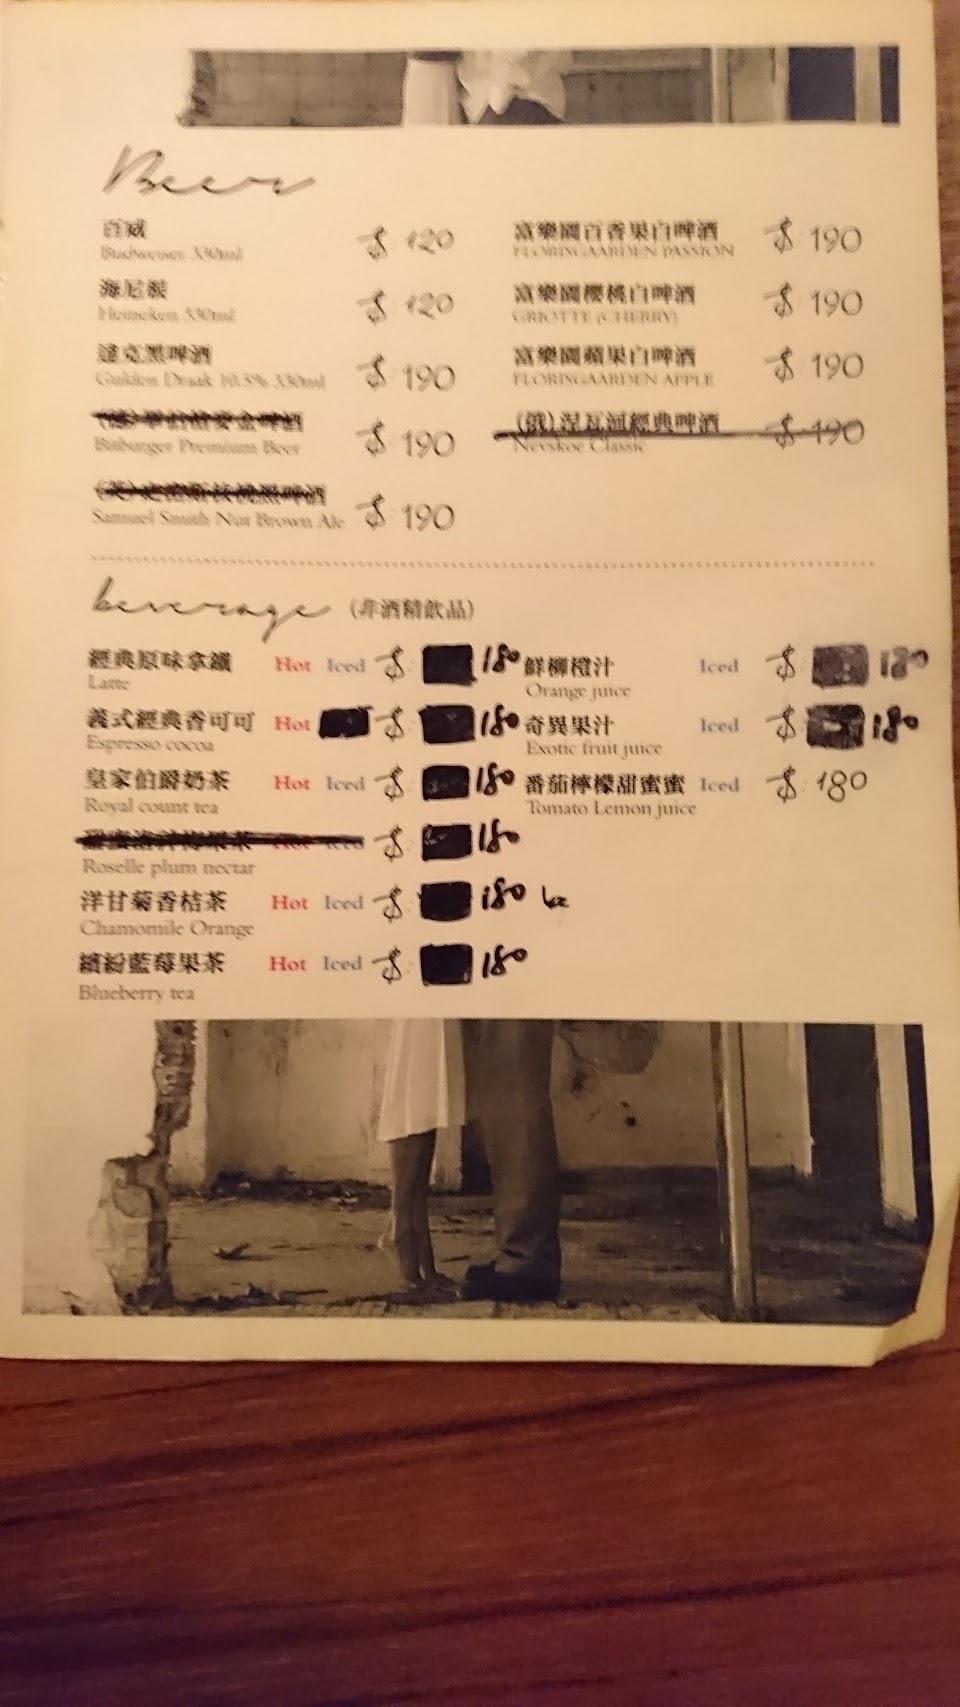 Beer
百威 $ 120
Budweiser 330ml
海尼根 $ 120
Heineken 330ml
達克黑啤酒 $ 190
Gulden Draak 10.5% 330ml
$ 190
Bitburger Premium Beer
Samuel Smith Nut Brown Ale $ 190
富樂園百香果白啤酒 $ 190
FLORISGAARDEN PASSION
富樂園櫻桃白啤酒 $ 190
GRIOTTE (CHERRY)
富樂園蘋果白啤酒 $ 190
FLORISGAARDEN APPLE
(俄)涅瓦河經典啤酒 $ 190
Nevskoe Classic
beverage (非酒精飲品)
經典原味拿鐵 Hot Iced $ 180
Latte
義式經典香可可 Hot $ 180
Espresso cocoa
皇家伯爵奶茶 Hot Iced $ 180
Royal count tea
Hot Iced $ 180
Roselle plum nectar
洋甘菊香桔茶 Hot Iced $ 180
Chamomile Orange
繽紛藍莓果茶 Hot Iced $ 180
Blueberry tea
鮮柳橙汁 Iced $ 180
Orange juice
奇異果汁 Iced $ 180
Exotic fruit juice
番茄檸檬甜蜜蜜 Iced $ 180
Tomato Lemon juice